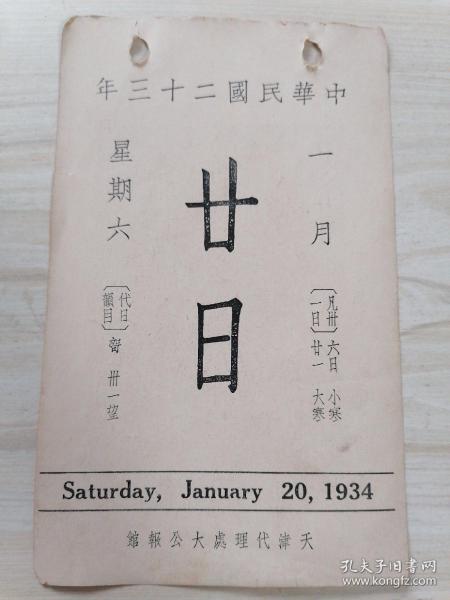 中華民國二十三年
一月
廿日
星期六
〔凡卅一日〕
六日 小寒
廿一 大寒
〔代日韻目〕
卅一望
Saturday, January 20, 1934
天津代理處大公報館
孔夫子旧书网
www.kongfz.com